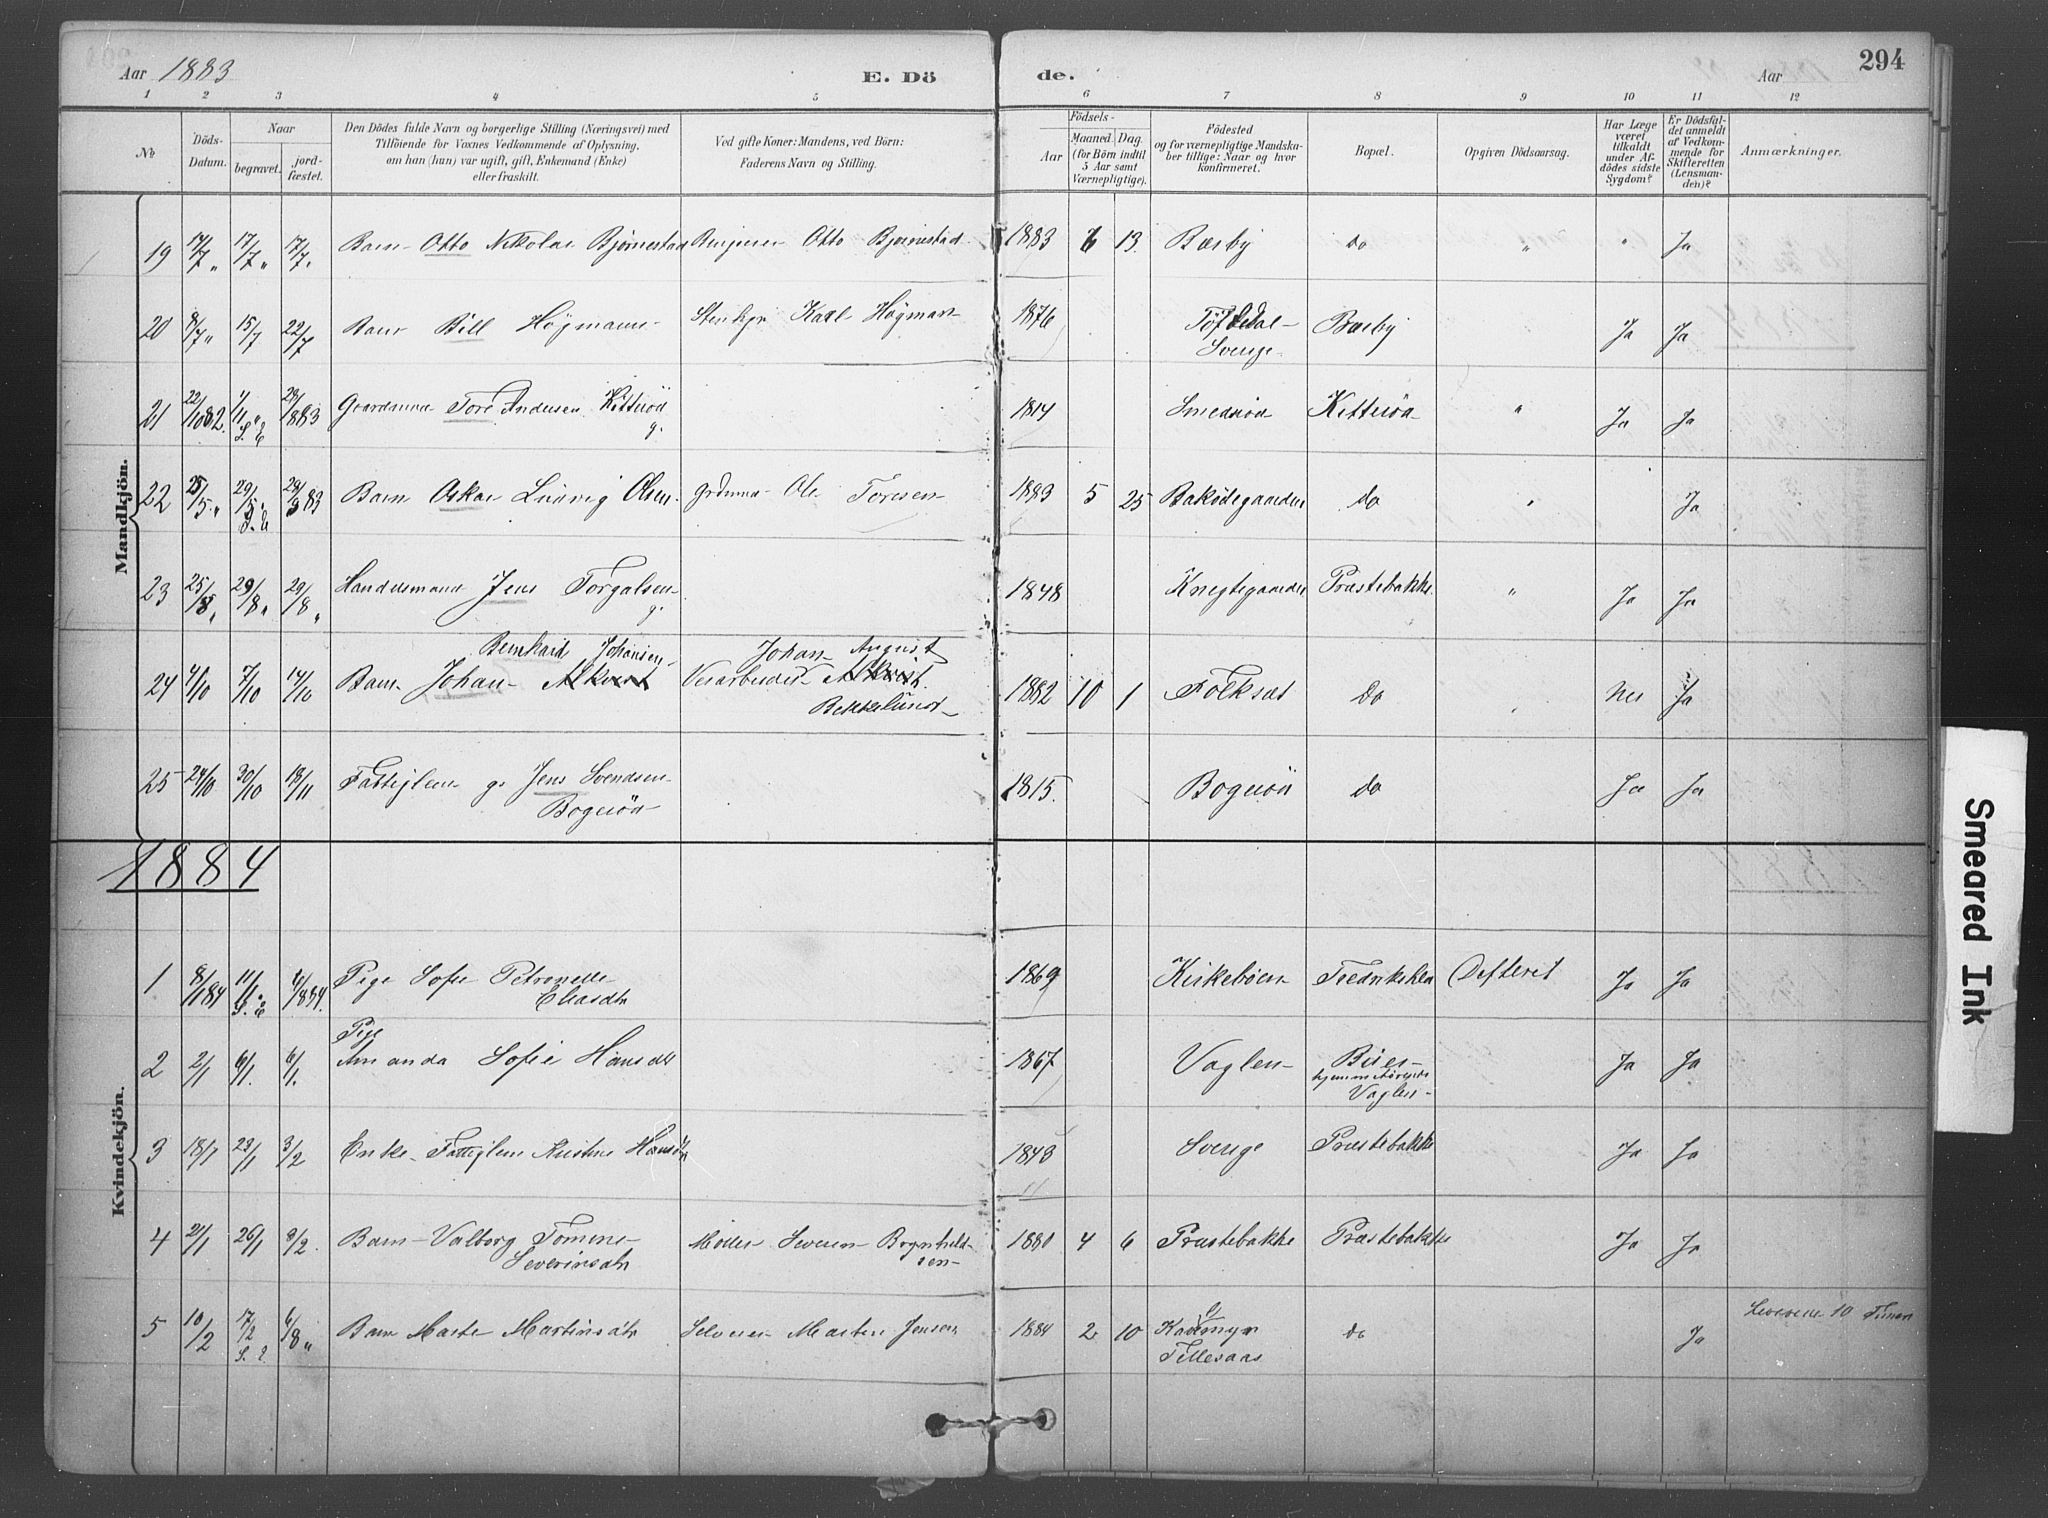 Aar 1883
E. Dö
de.
Aar
294
1 2 3 4 5 6 7 8 9 10 11 12
No
Döds-
Datum.
Naar
begravet.
jord-
fæstet.
Den Dödes fulde Navn og borgerlige Stilling (Næringsvei) med
Tilföiende for Voxnes Vedkommende af Oplysning.
om han (hun) var ugift, gift, Enkemand (Enke)
eller fraskilt.
Ved gifte Koner: Mandens, ved Börn:
Faderens Navn og Stilling.
Födsels-
Aar
Maaned.
Dag.
(for Börn indtil
5 Aar samt
Værnepligtige).
Födested
og for værnepligtige Mandska-
ber tillige: Naar og hvor
konfirmeret.
Bopæl.
Opgiven Dödsaarsag.
Har Læge
været
tilkaldt
under Af-
dödes sidste
Sygdom?
Er Dödsfal-
det anmeldt
af Vedkom-
mende for
Skifteretten
(Lensman-
den)?
Anmærkninger.
Mandkjön.
19 17/7 " 17/7 " 17/7. Barn Otto Nikolai Björnestad Otto Bjørnestad 1883 6 13. Bærby do " " Ja
20 8/7 " 15/7 22/7 Barn Bill Högmann Karl Högman 1876 Töftedal Bærby Ja Ja
Sverige
21 22/10 82. 1/11 " 1883 Gaardmand Tore Andersen Kitteröd 1814 Smedröd Kitteröd " Ja Ja
S. E g.
22 25/5 " 29/5 83 Barn Oskar Ludvig Olsen Grdmnd Ole Toresen 1883 5 25 Baködegaarden do " Ja
S. E
23 25/8 " 29/8 " 29/8 " Handelsmand Jens Torgalsen 1848 Knegtegaarden Præstebakke " Ja Ja
g.
Bernhard Johansen Johan August
24 4/10 7/10 14/10 Barn Johan 1882 10 1 Folksæt do " Nei Ja
Bekkelund
25 24/10 30/10 18/11 Fattiglem g. Jens Svendsen 1815. Bogeröd do Ja Ja
Bogeröd
1884
Kvindekjön.
1 8/1 84 11/1 " 1884. Pige Sofie Petronelle 1869 Kirkeböen Fredrikshald Defterit Ja Ja
S. E Eliasdtr
Pige
2 2/1 6/1. 6/1. Amanda Sofie Hansdtr 1867 Vaglen Ja Ja
hjemmehörende
Vaglen
3 18/1 23/1 3/2 Enke Fattiglem Kristine Hansdtr 1843 Sverige Præstebakke Ja Ja
4 21/1 26/1 3/2. Barn Valborg Tomine Möller Severin Brynhild- 1880 4 6 Præstebakke Præstebakke Ja Ja
Severinsdtr sen
5 10/2 17/2 6/8 " Barn Marte Martinsdtr Selveier Martin Jensen 1884 2 10 do Ja Levede 10 Timer
S. E. Tillesaas
Smeared Ink